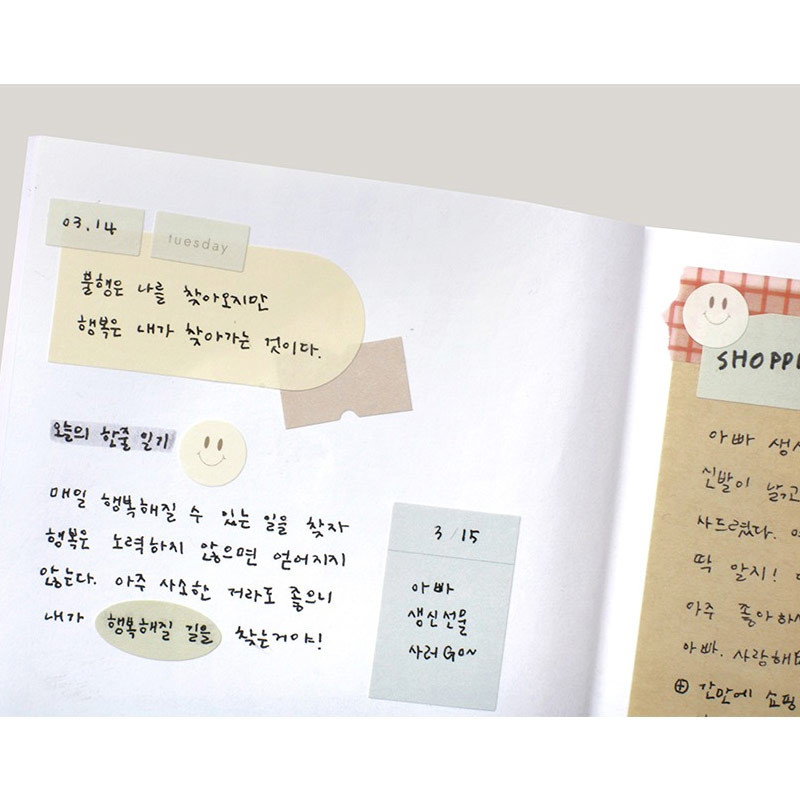 03.14
tuesday
불행은 나를 찾아오지만
행복은 내가 찾아가는 것이다.
오늘의 한줄 일기
매일 행복해질 수 있는 일을 찾자
행복은 노력하지 않으면 얻어지지
않는다. 아주 사소한 거라도 좋으니
내가 행복해질 길을 찾는거야!
3/15
아빠
생신선물
사러 GO~
SHOPP
아빠 생
신발이 낡고
사드렸다.
딱 알지!
아주 좋아하
아빠. 사랑해
⊕ 간만에 쇼핑